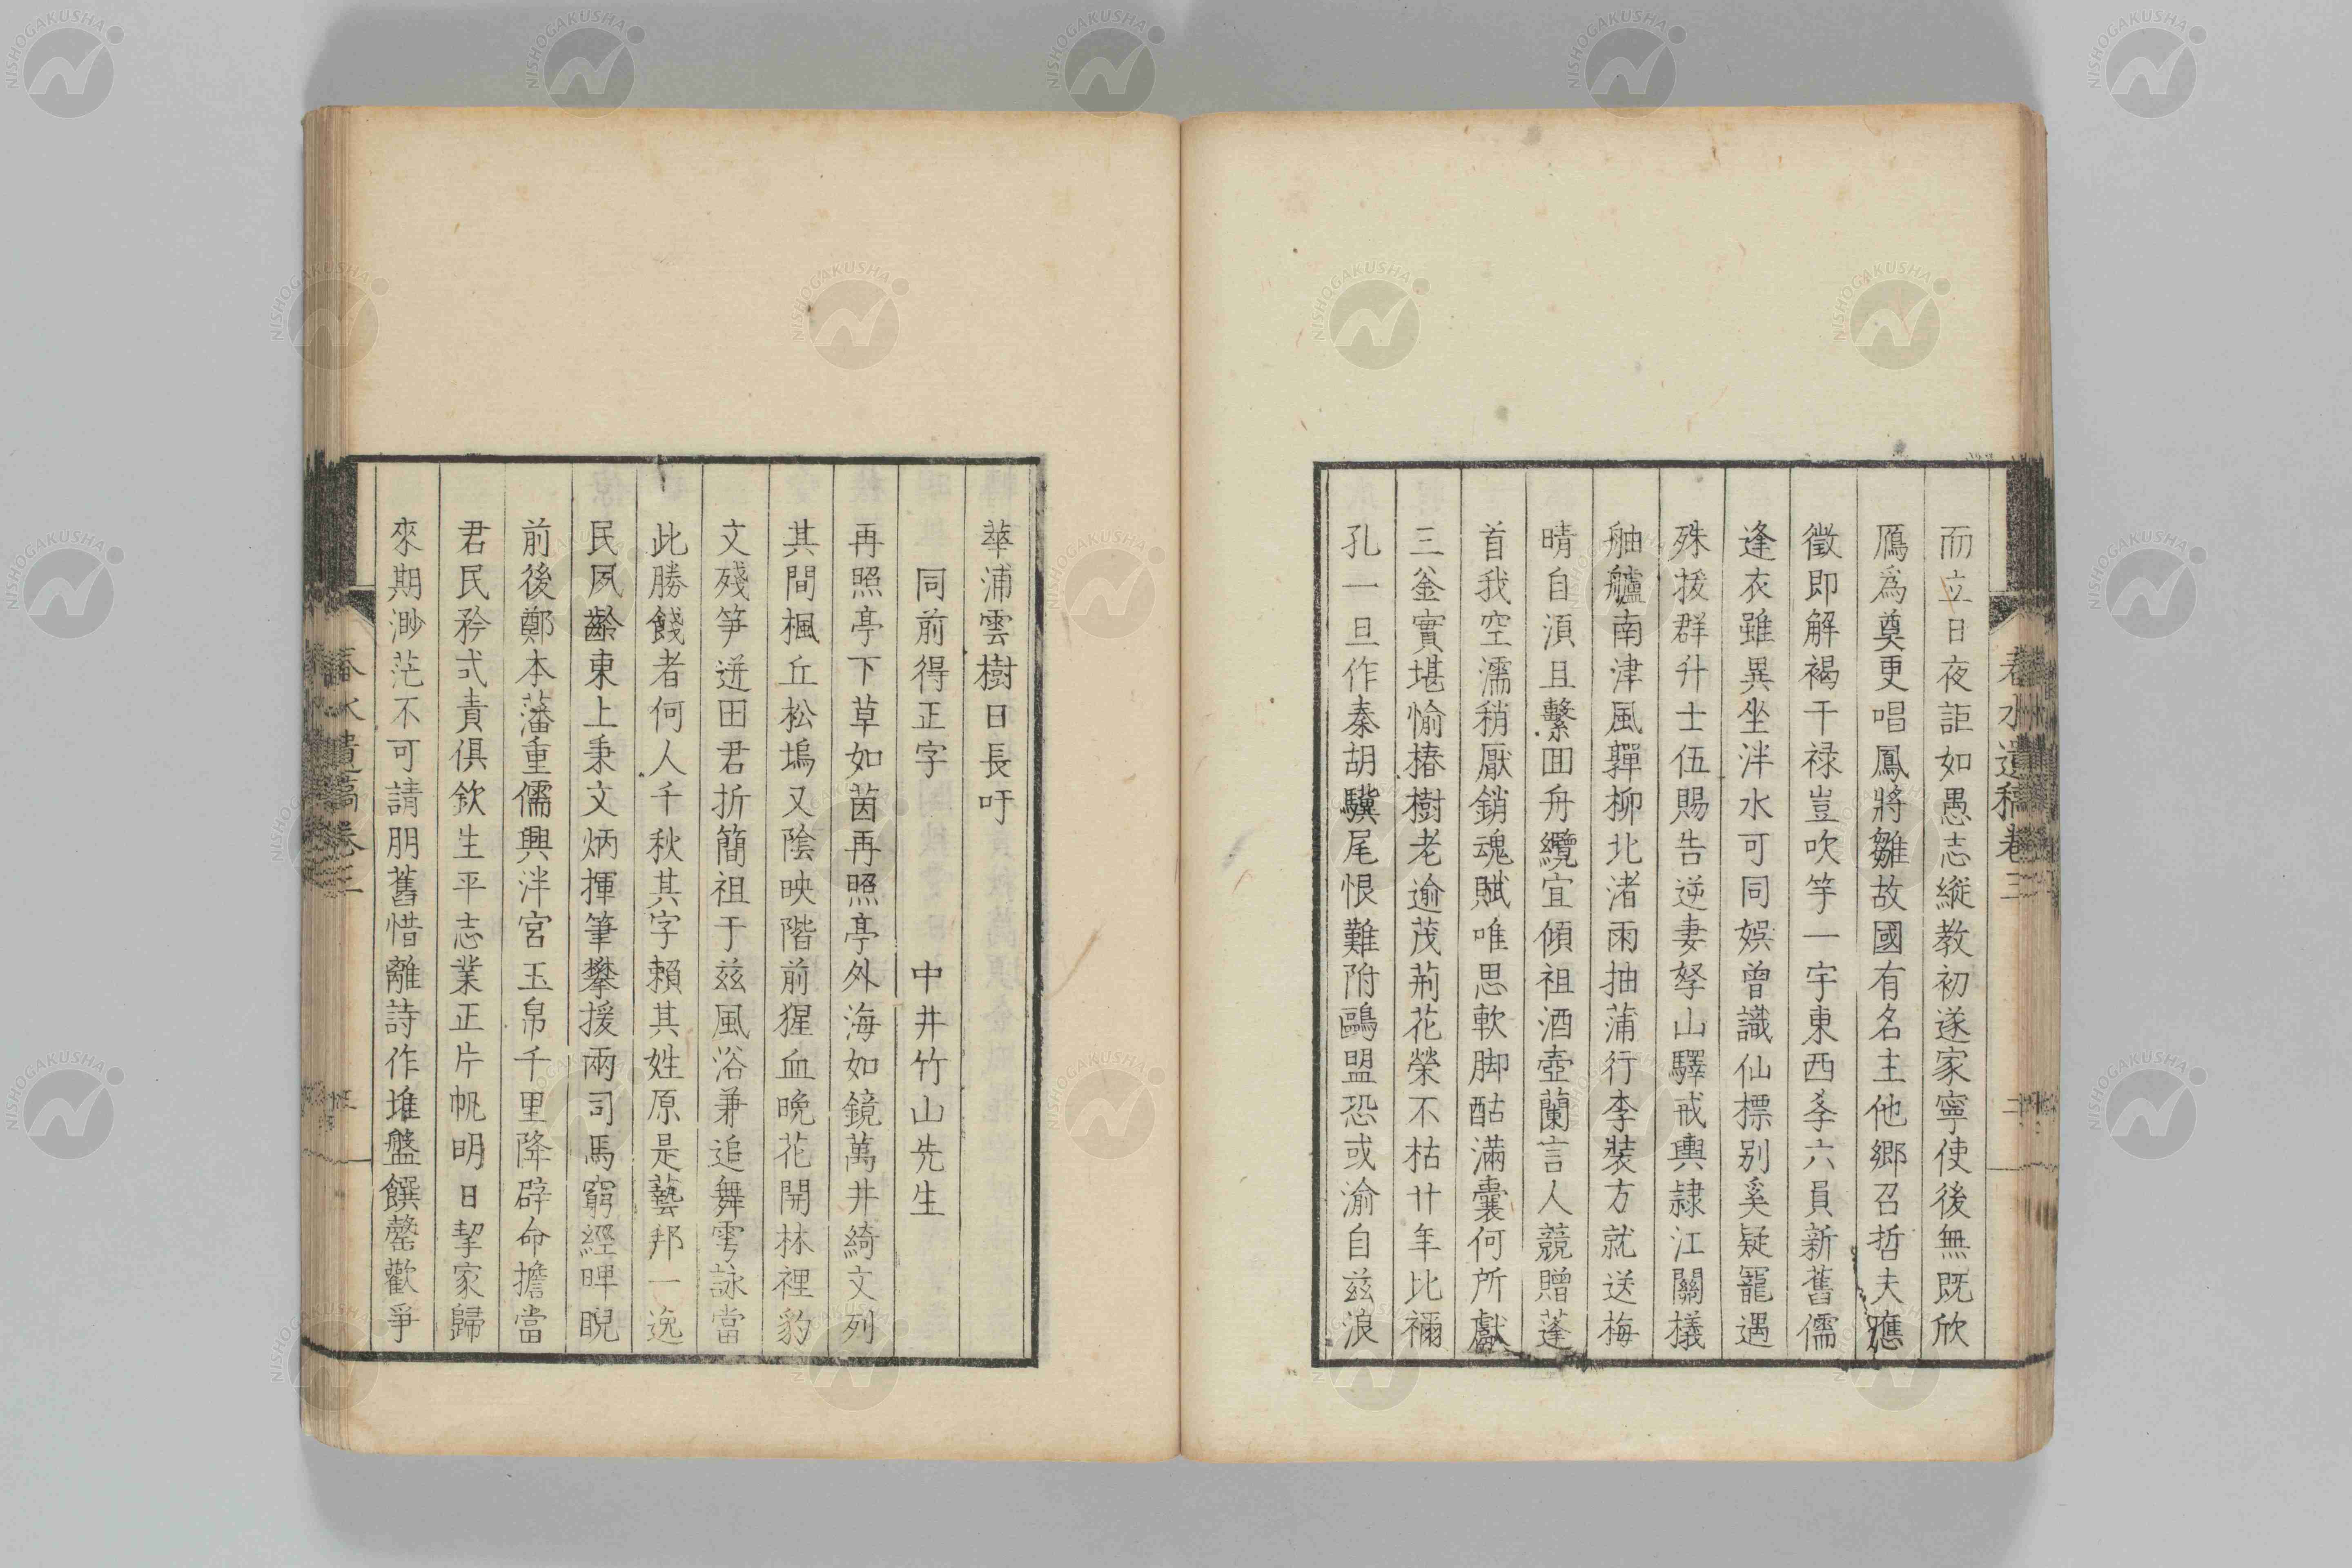 而立日夜詎如愚志縱教初遂家寧使後無既欣
鴈爲奠更唱鳳將雛故國有名主他鄉召哲夫應
徵即解褐干禄豈吹竽一宇東西夅六員新舊儒
逢衣雖異坐泮水可同娯曾識仙標别奚疑寵遇
殊拔群升士伍賜告逆妻孥山驛戒輿隷江關檥
舳艫南津風嚲柳北渚雨抽蒲行李裝方就送梅
晴自湏且繫囬舟纜宜傾祖酒壺蘭言人競贈蓬
首我空濡稍厭銷魂賦唯思軟脚酤滿囊何所獻
三釜實堪愉椿樹老逾茂荊花榮不枯廿年比禰
孔一旦作秦胡驥尾恨難附鷗盟恐或渝自兹浪
春水遺稿卷三
華浦雲樹日長吁
同前得正字 中井竹山先生
再照亭下草如茵再照亭外海如鏡萬井綺文列
其間楓丘松塢又陰映階前猩血晩花開林裡豹
文殘笋迸田君折簡祖于兹風浴兼追舞雩詠當
此勝餞者何人千秋其字賴其姓原是藝邦一逸
民夙齡東上秉文炳揮筆攀援兩司馬窮經睥睨
前後鄭本藩重儒興泮宮玉帛千里降辟命擔當
君民矜式責俱欽生平志業正片帆明日挈家歸
來期渺茫不可請朋舊惜離詩作堆盤饌罄歡爭
春水遺稿卷三
NISHOGAKUSHA